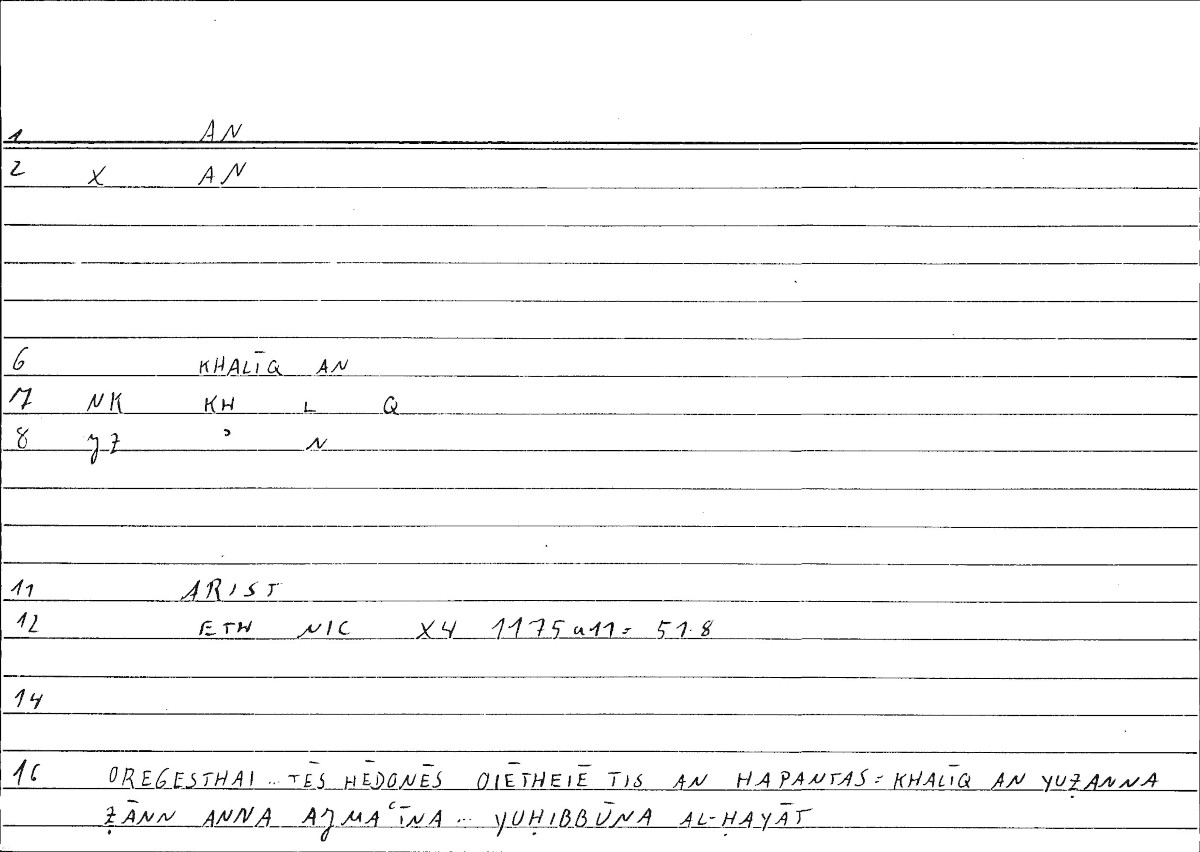 1 AN
2 X AN
6 KHALĪQ AN
7 NK KH L Q
8 yZ ʾ N
11 ARIST
12 ETH NIC X4 1175a11= 51.8
14
16 OREGESTHAI .. TĒS HĒDONĒS OIĒTHEIĒ TIS AN HAPANTAS = KHALĪQ AN YUẒANNA
ẒĀNN ANNA AJMAʿĪNA ... YUḤIBBŪNA AL-ḤAYĀT